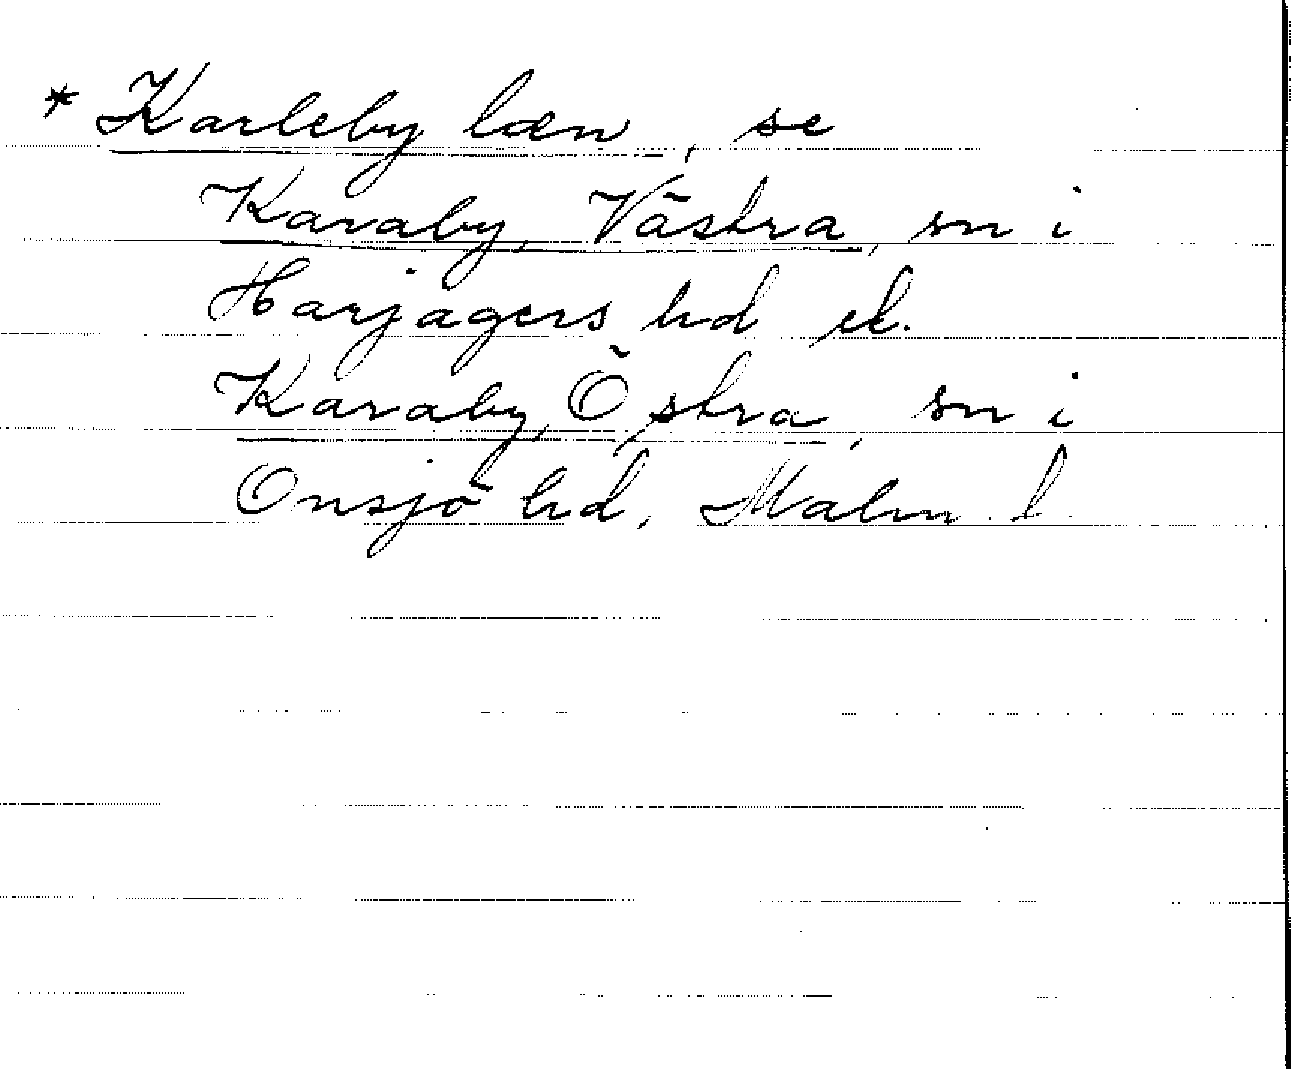 * Karleby læn, se
Karaby, Västra, sn i
Harjagers hd el.
Karaby, Östra, sn i
Onsjö hd, Malm. l.